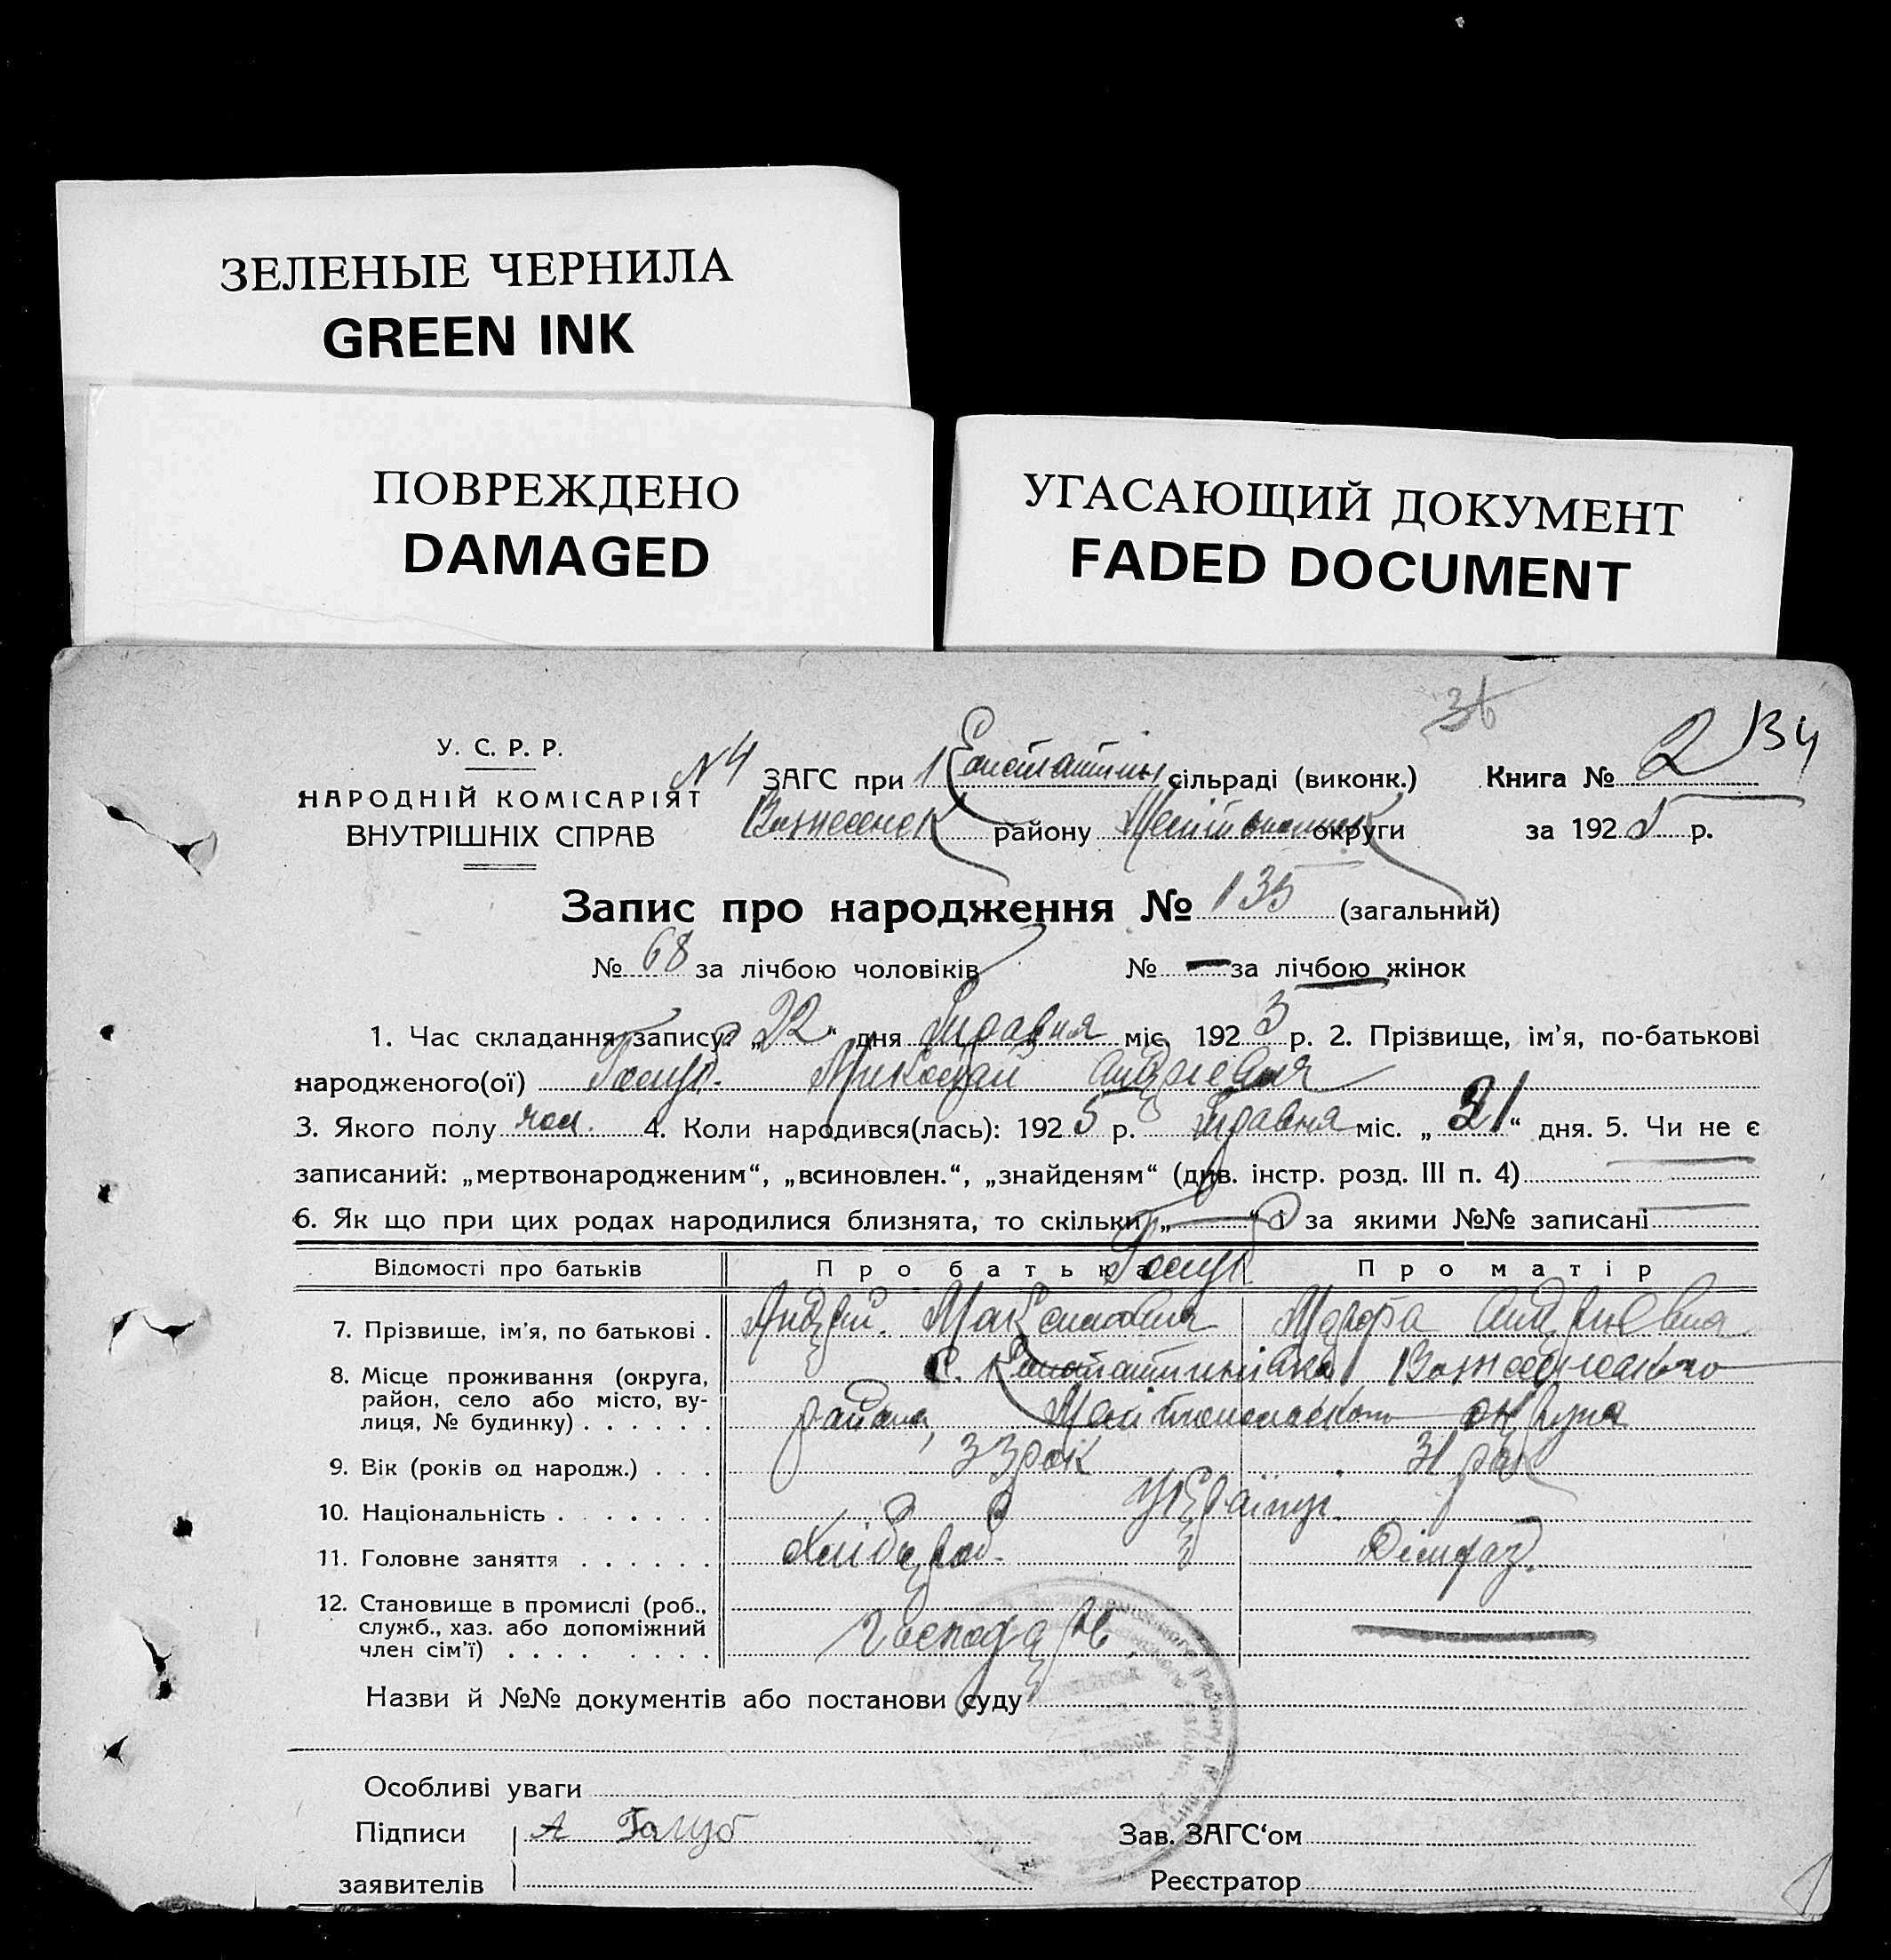 ЗЕЛЕНЫЕ ЧЕРНИЛА
GREEN INK
ПОВРЕЖДЕНО
DAMAGED
УГАСАЮЩИЙ ДОКУМЕНТ
FADED DOCUMENT
36
134
У. С. Р. Р.
НАРОДНІЙ КОМІСАРІЯТ
ВНУТРІШНІХ СПРАВ
N4 ЗАГС при 1 Констатин сільраді (виконк.) Книга № 2
Вознесенск району округи за 1925 р.
Запис про народження № 135 (загальний)
№ 68 за лічбою чоловіків № — за лічбою жінок
1. Час складання запису: „22“ дня Травня міс. 1925 р. 2. Прізвище, ім’я, по-батькові
народженого(ої) Голуб. Миколай Андрієвич
3. Якого полу чол. 4. Коли народився(лась): 1925 р. Травня міс. „21“ дня. 5. Чи не є
записаний: „мертвонародженим“, „всиновлен.“, „знайденям“ (див. інстр. розд. III п. 4)
6. Як що при цих родах народилися близнята, то скільки „—“ і за якими №№ записані
Відомості про батьків Про батька Про матір
Голуб
7. Прізвище, ім’я, по батькові . Андрій. Максимович Андріевна
8. Місце проживання (округа, район, село або місто, вулиця, № будинку) . . . . . . с. Констатинівка Вознесенского
района, Мелітопольского округа
9. Вік (років од народж.) . . . 33 рок 31 рок
10. Національність . . . . . . . Україн.
11. Головне заняття . . . . . . Хлібороб.
12. Становище в промислі (роб., служб., хаз. або допоміжний член сім’ї) . . . . . . . . . Господарь
Назви й №№ документів або постанови суду
Особливі уваги
Підписи А Голуб Зав. ЗАГС‘ом
заявителів Реєстратор